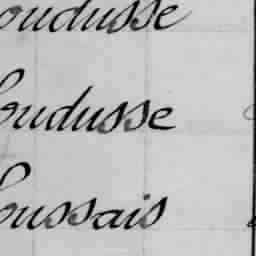 oudusse
oudusse
oussais